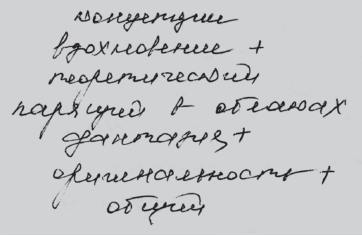 концепции
вдохновение +
теоретический
парящий в облаках
фантазия +
оригинальность +
общий